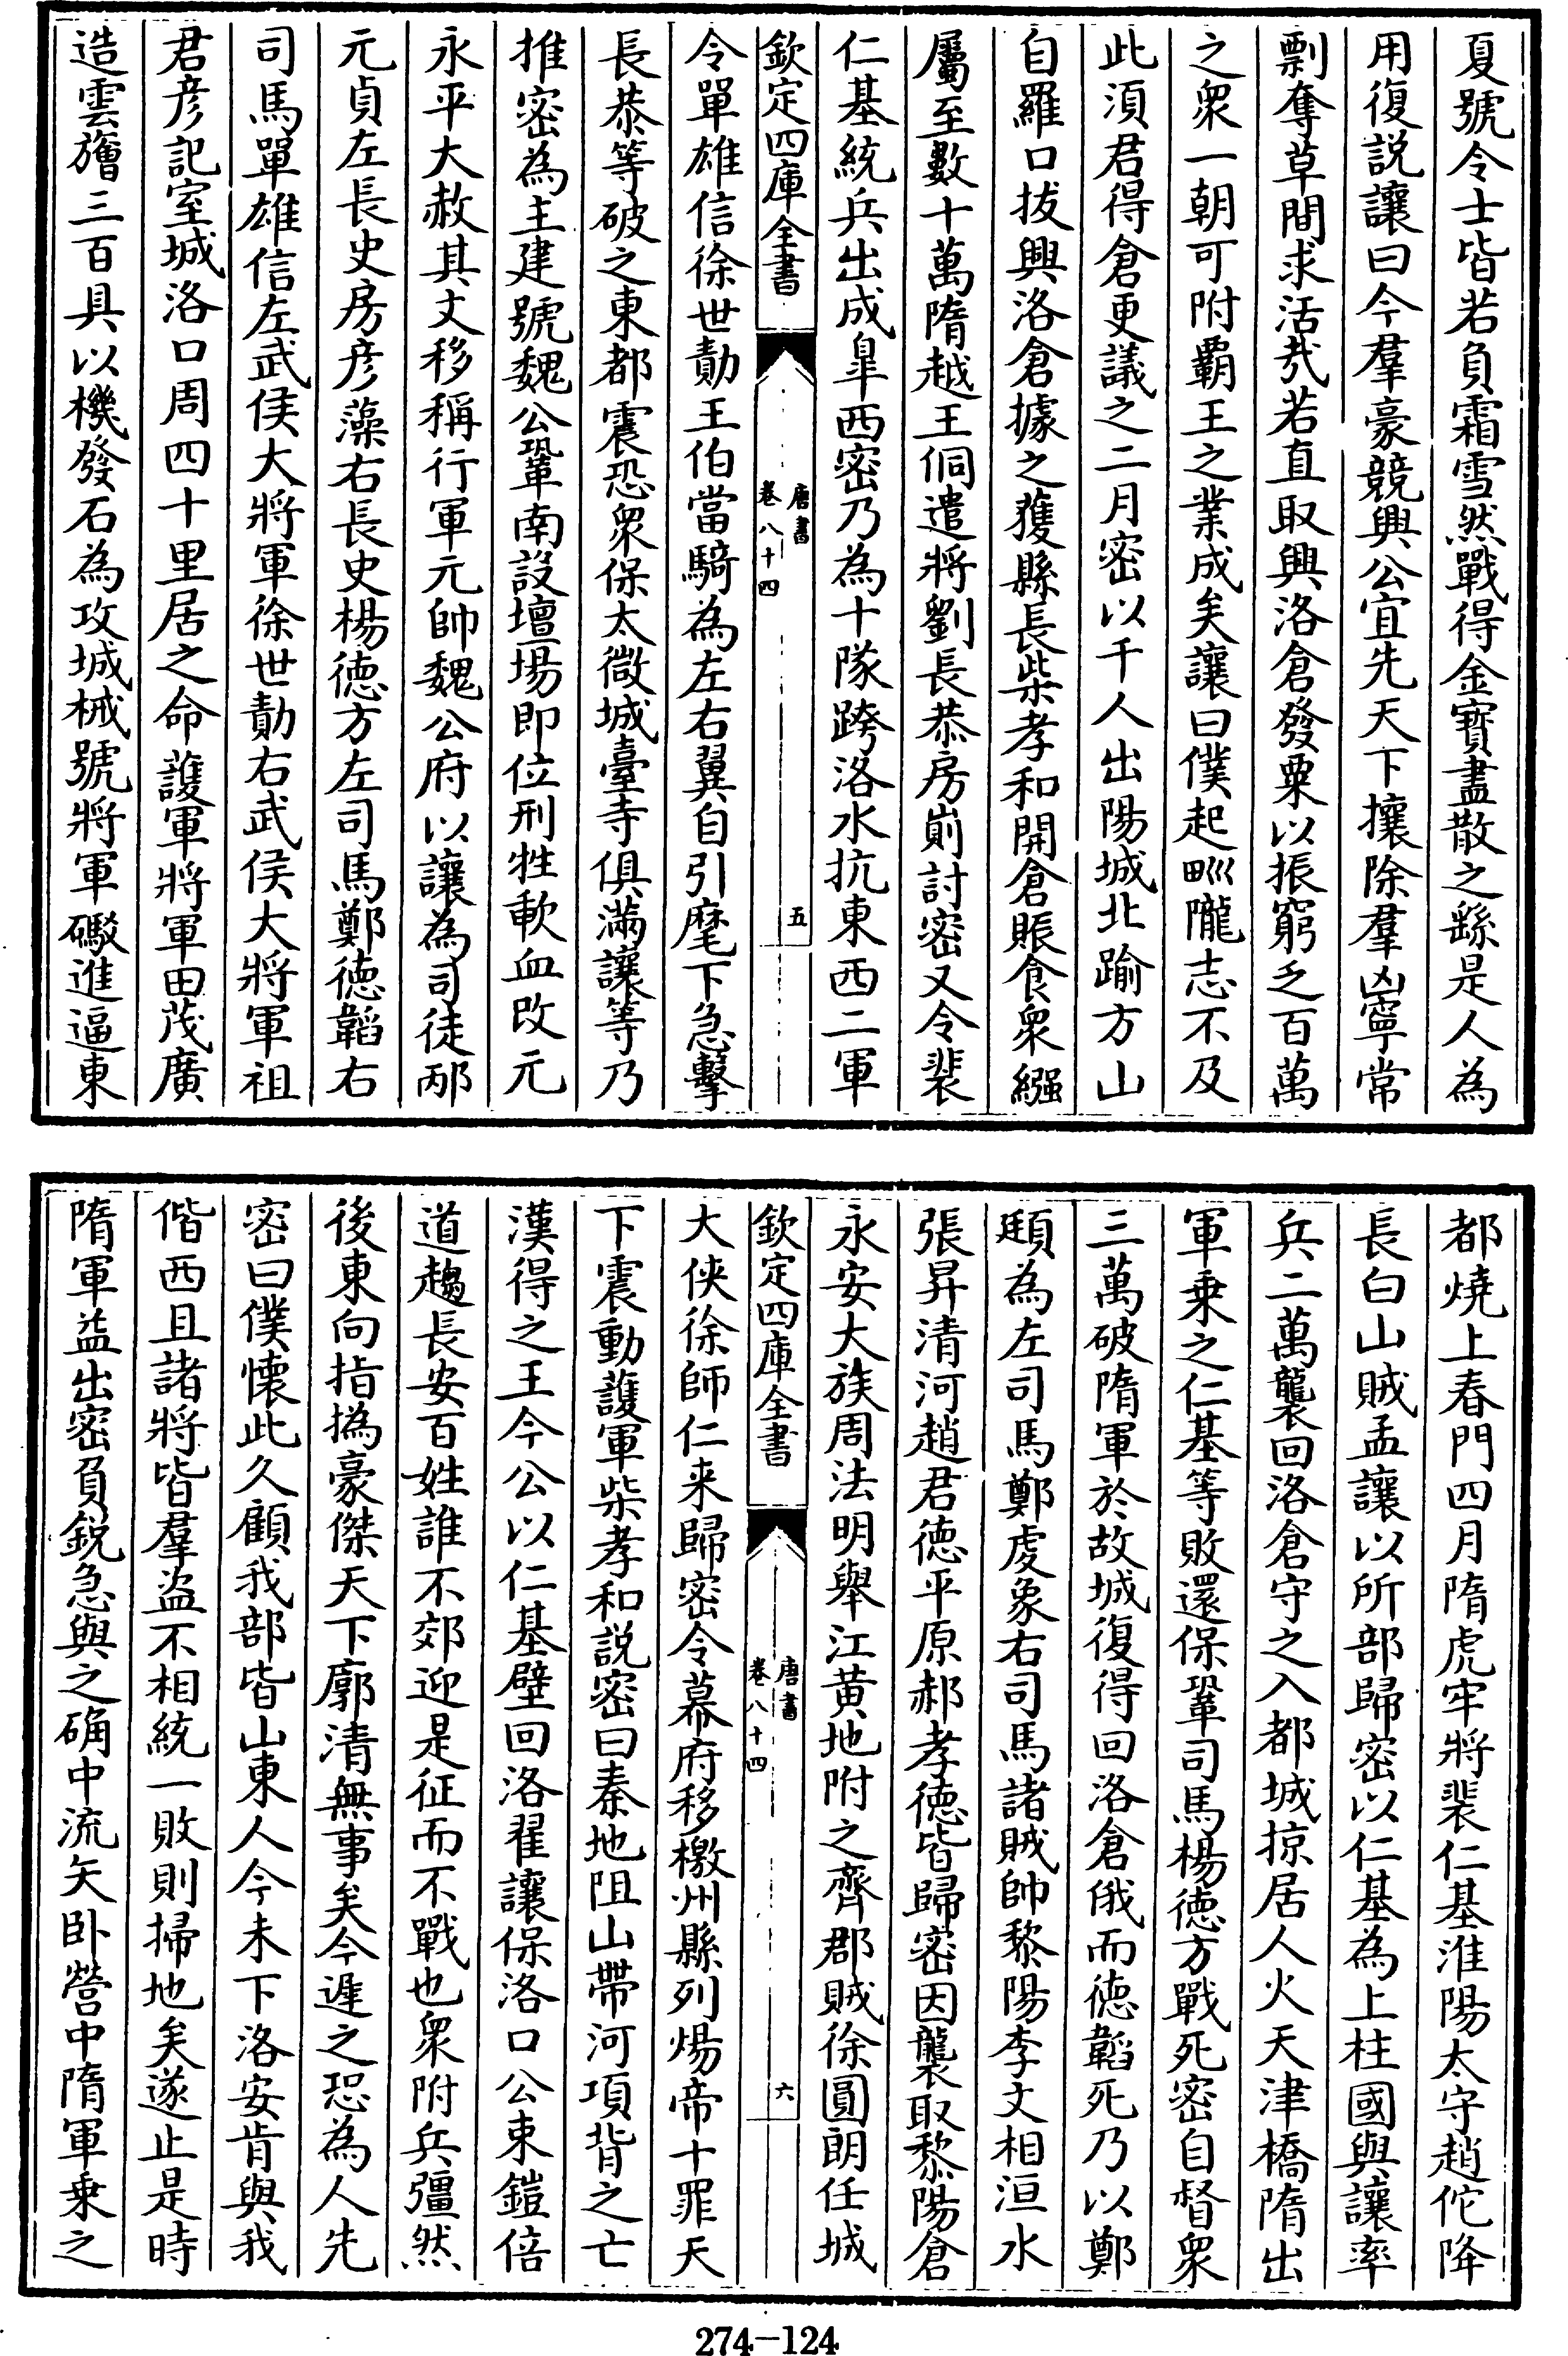 夏號令士皆若負霜雪然戰得金寶盡散之繇是人為
用復説讓曰今羣豪競興公宜先天下攘除羣凶寧常
剽奪草間求活㢤若直取興洛倉發粟以振窮乏百萬
之衆一朝可附霸王之業成矣讓曰僕起畎隴志不及
此湏君得倉更議之二月密以千人出陽城北踰方山
自羅口拔興洛倉據之獲縣長柴孝和開倉賑食衆繦
屬至數十萬隋越王侗遣將劉長恭房崱討密又令裴
仁基統兵出成臯西密乃為十隊跨洛水抗東西二軍
欽定四庫全書
唐書
卷八十四
五
令單雄信徐世勣王伯當騎為左右翼自引麾下急擊
長恭等破之東都震恐衆保太微城臺寺俱滿讓等乃
推密為主建號魏公鞏南設壇場即位刑牲歃血改元
永平大赦其文移稱行軍元帥魏公府以讓為司徒邴
元貞左長史房彦藻右長史楊徳方左司馬鄭徳韜右
司馬單雄信左武侯大將軍徐世勣右武侯大將軍祖
君彦記室城洛口周四十里居之命護軍將軍田茂廣
造雲旝三百具以機發石為攻城械號將軍礮進逼東
都燒上春門四月隋虎牢將裴仁基淮陽太守趙佗降
長白山賊孟讓以所部歸密以仁基為上柱國與讓率
兵二萬襲回洛倉守之入都城掠居人火天津橋隋出
軍乗之仁基等敗還保鞏司馬楊徳方戰死密自督衆
三萬破隋軍於故城復得回洛倉俄而徳韜死乃以鄭
頲為左司馬鄭虔象右司馬諸賊帥黎陽李文相洹水
張昇清河趙君徳平原郝孝徳皆歸密因襲取黎陽倉
永安大族周法明舉江黄地附之齊郡賊徐圓朗任城
欽定四庫全書
唐書
卷八十四
六
大俠徐師仁来歸密令幕府移檄州縣列煬帝十罪天
下震動護軍柴孝和説密曰秦地阻山帶河項背之亡
漢得之王今公以仁基壁回洛翟讓保洛口公束鎧倍
道趨長安百姓誰不郊迎是征而不戰也衆附兵彊然
後東向指撝豪傑天下廓清無事矣今遲之恐為人先
密曰僕懷此久顧我部皆山東人今未下洛安肯與我
偕西且諸將皆羣盗不相統一敗則掃地矣遂止是時
隋軍益出密負鋭急與之确中流矢卧營中隋軍乗之
274-124